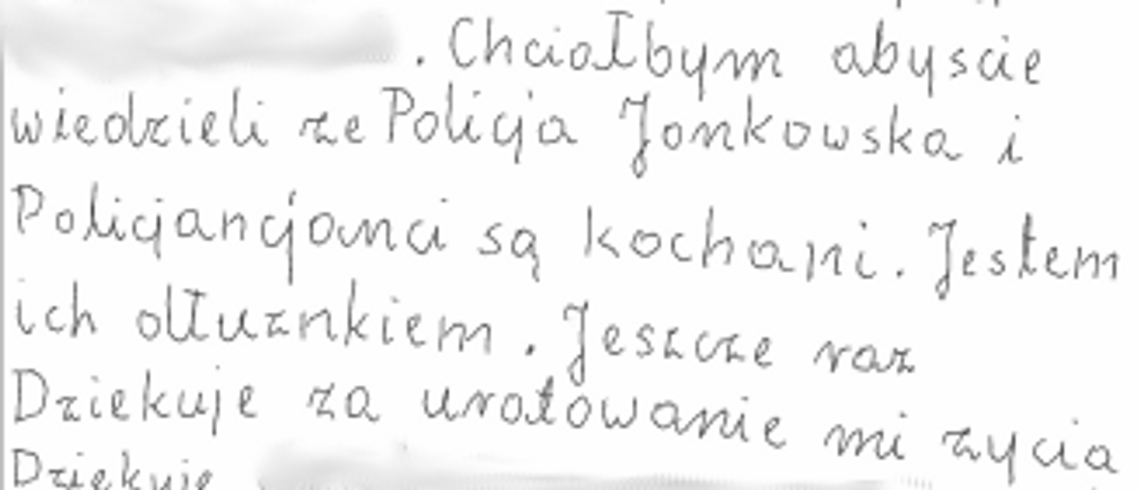 . Chciałbym abyscie
wiedzieli ze Policja Jonkowska i
Policjancjanci są kochani. Jestem
ich dłuznkiem. Jeszcze raz
Dziekuje za uratowanie mi zycia
Dziekuje